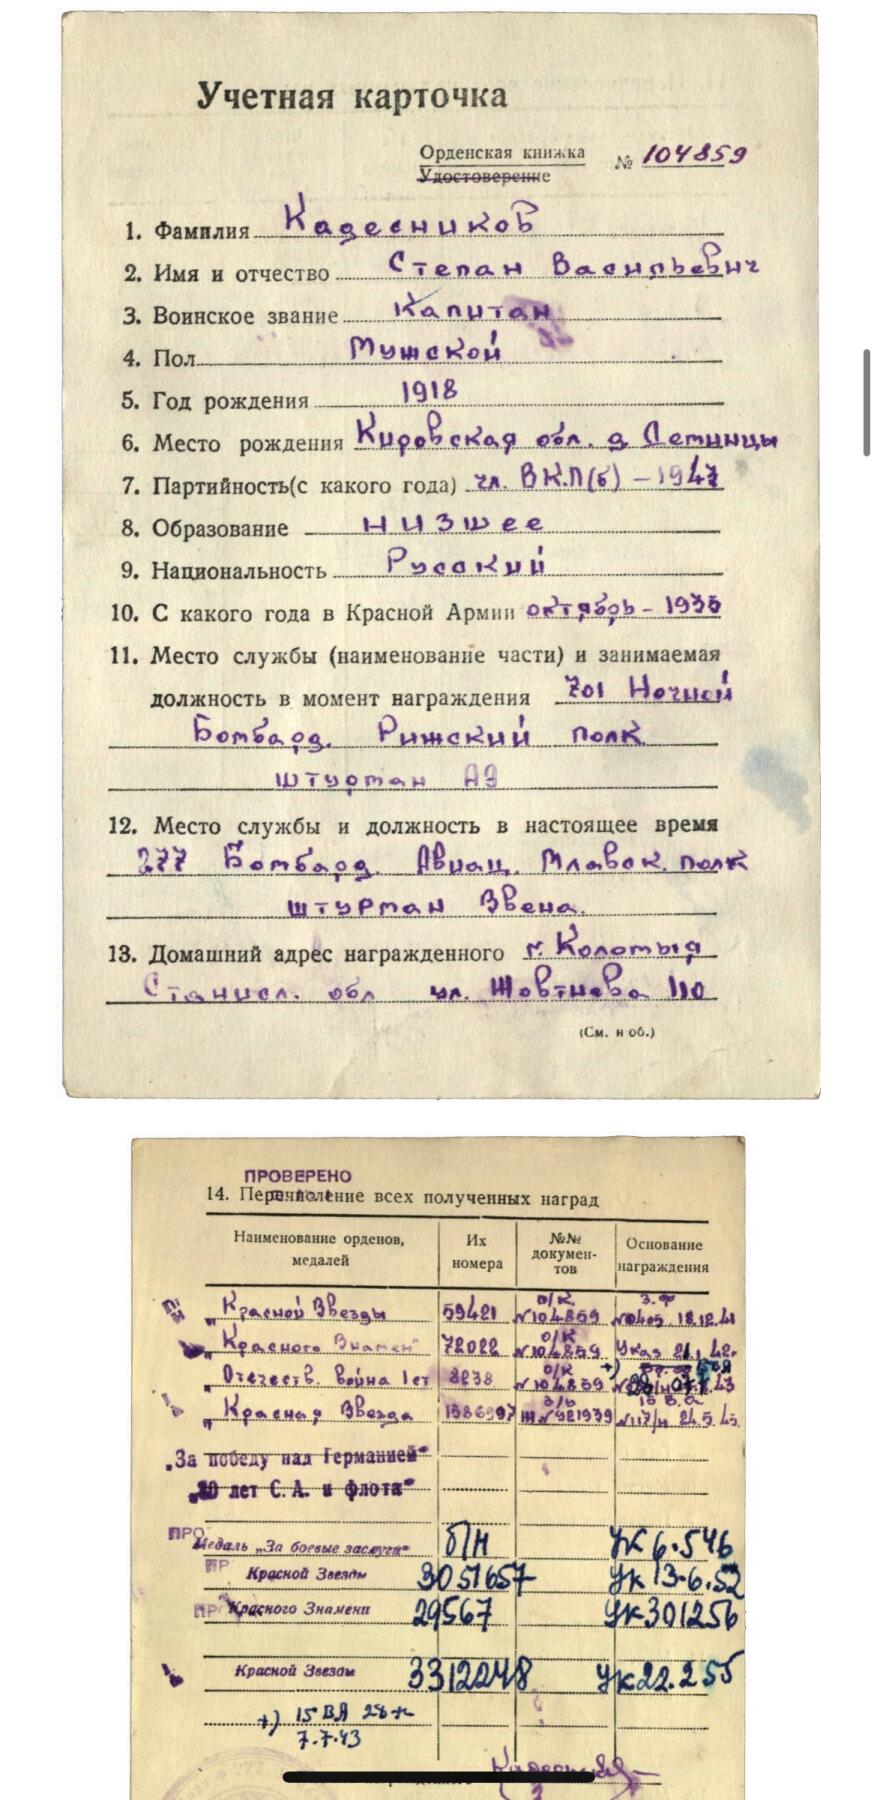 Учетная карточка
Орденская книжка № 104859
Удостоверение
1. Фамилия Кадесников
2. Имя и отчество Степан Васильевич
3. Воинское звание Капитан
4. Пол Мужской
5. Год рождения 1918
6. Место рождения Кировская обл. д
7. Партийность(с какого года) чл. ВКП(б) – 1947
8. Образование низшее
9. Национальность Русский
10. С какого года в Красной Армии октябрь –
11. Место службы (наименование части) и занимаемая
должность в момент награждения 701 Ночной
Бомбард. Рижский полк
штурман АЭ
12. Место службы и должность в настоящее время
277 Бомбард. Авиац. Млавск. полк
штурман Звена.
13. Домашний адрес награжденного г. Коломыя
Станисл. обл ул. Жовтнева 110
(См. н об.)
ПРОВЕРЕНО
14. Перечисление всех полученных наград
Наименование орденов, медалей Их номера №№ документов Основание награждения
„Красной Звезды 59421 о/к №104859 З.Ф №0405 18.12.41
„Красного Знамен" 72022 о/к №104859 Указ 21.1.42.
„Отечеств. война 1 ст 8238 о/к №104859 +) 15ВА 43
„Красная Звезда 1586997 №921939 15 В.А №117/н 24.5.45.
„За победу над Германией"
„30 лет С. А. и флота"
ПРО
Медаль „За боевые заслуги" б/н Ук 6.5 46
ПР
Красной Звезды 3051657 Ук 13-6.52
ПР
Красного Знамени 29567 Ук 301256
Красной Звезды 3312248 Ук 22.2 55
+) 15 ВА 28-н
7.7.43